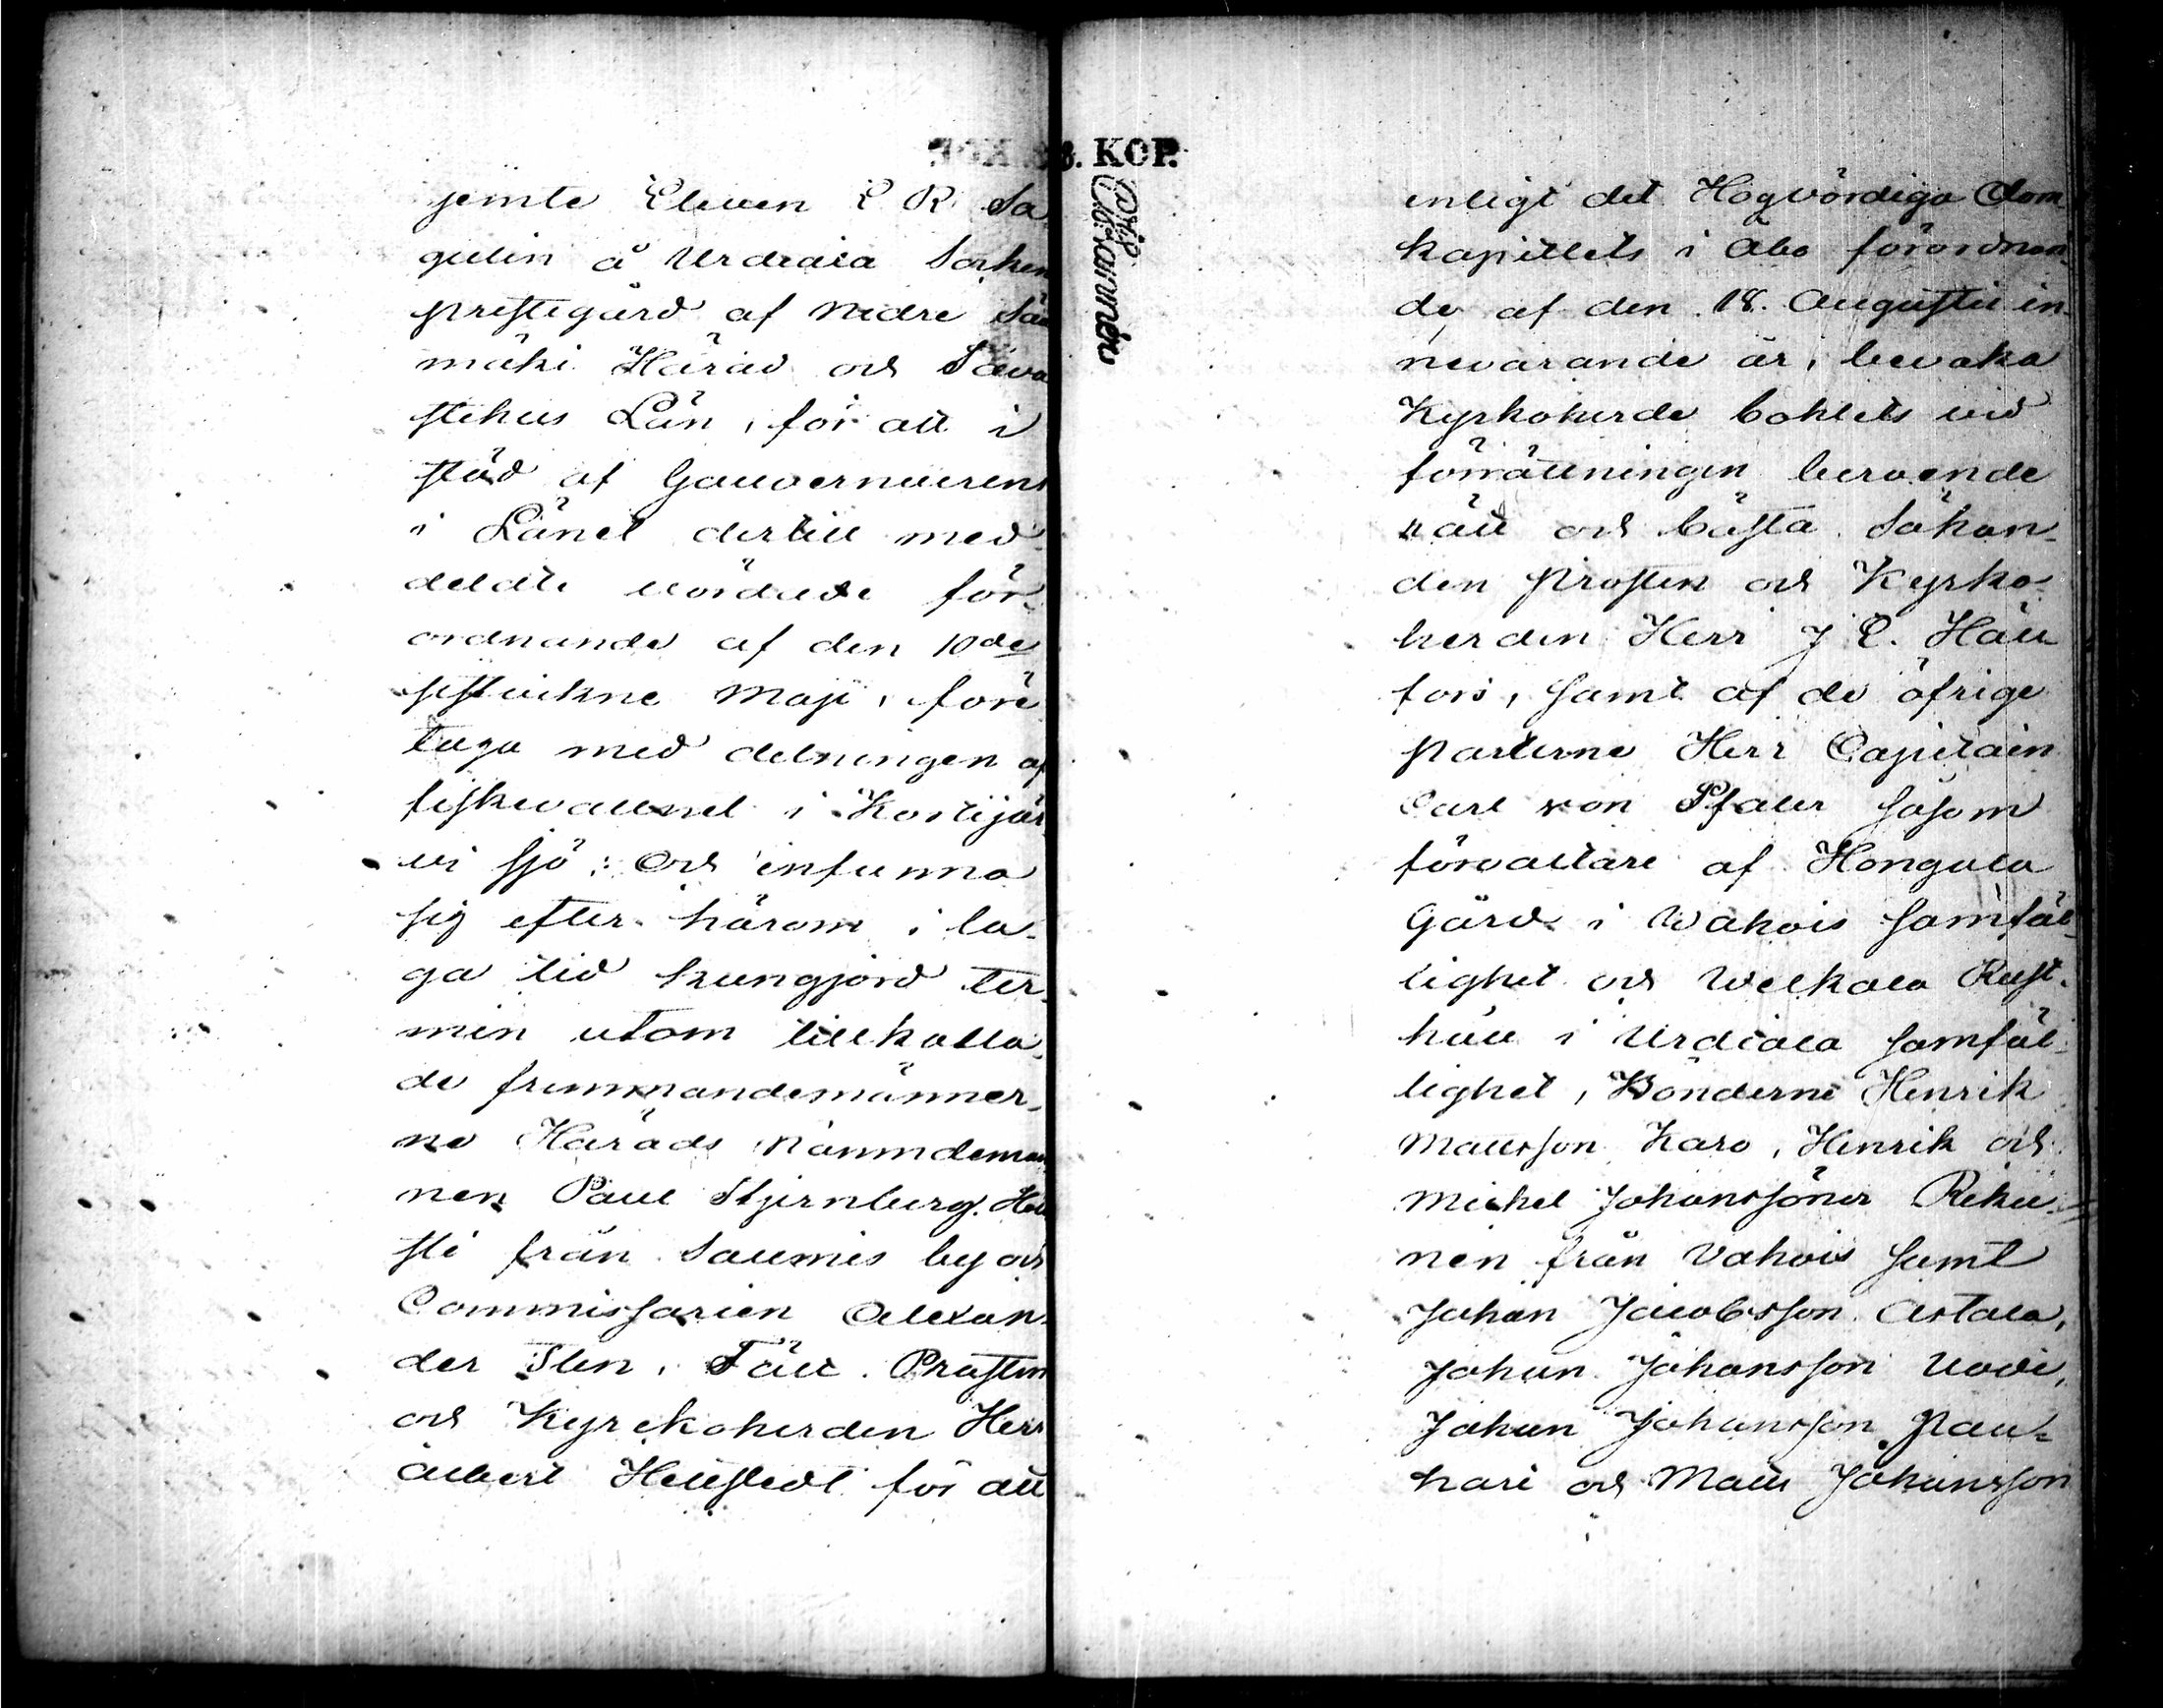 jemte Eleven E R Sa
gulin å Urdiala Socken
prestegård af Nedre Sää
mäki Härad och Tava
stehus Län, för att i
stöd af Gouverneurens
i Länet dertill med-
deldte vördade för-
ordnande af den 10de
sistvikne Maji, före
taga med delningen af
fiskevattnet i Kortijär
vi sjö: Och infunno
sig efter härom i la-
ga tid kungjord ter-
min utom tillkalla-
de fremmandemänner-
ne Härads Nämndemän
nen Paul Stjernberg
sti från Saumis by och
Commissarien Alexan-
der Tlen. Täll. Prosten
och Kyrckoherden Herr
Albert Hellstedt för att
8. KOP.
enligt det Högvördiga Dom-
kapitlets i Åbo förordnan-
de af den 18. Augustii in-
nevarande år, bevaka
Kyrkoherde bohlets vid
förrättningen beroende
rätt och bästa. Sökan-
den Prosten och Kyrko-
herden Herr J E. Häll
fors, samt af de öfrige
parterne Herr Capitain
Carl von Pfaler såsom
förvaltare af Hongola
Gård i Wahois samfäl-
lighet och Welkala Rust-
håll i Urdiala samfäl-
lighet, Bönderne Henrik
Mattsson Karo, Henrik och
Michel Johanssöner Reku-
nen från Vahois samt
Johan Jacobsson Astala,
Johan Johansson Uovi,
Johan Johansson Nau-
hari och Matts Johansson